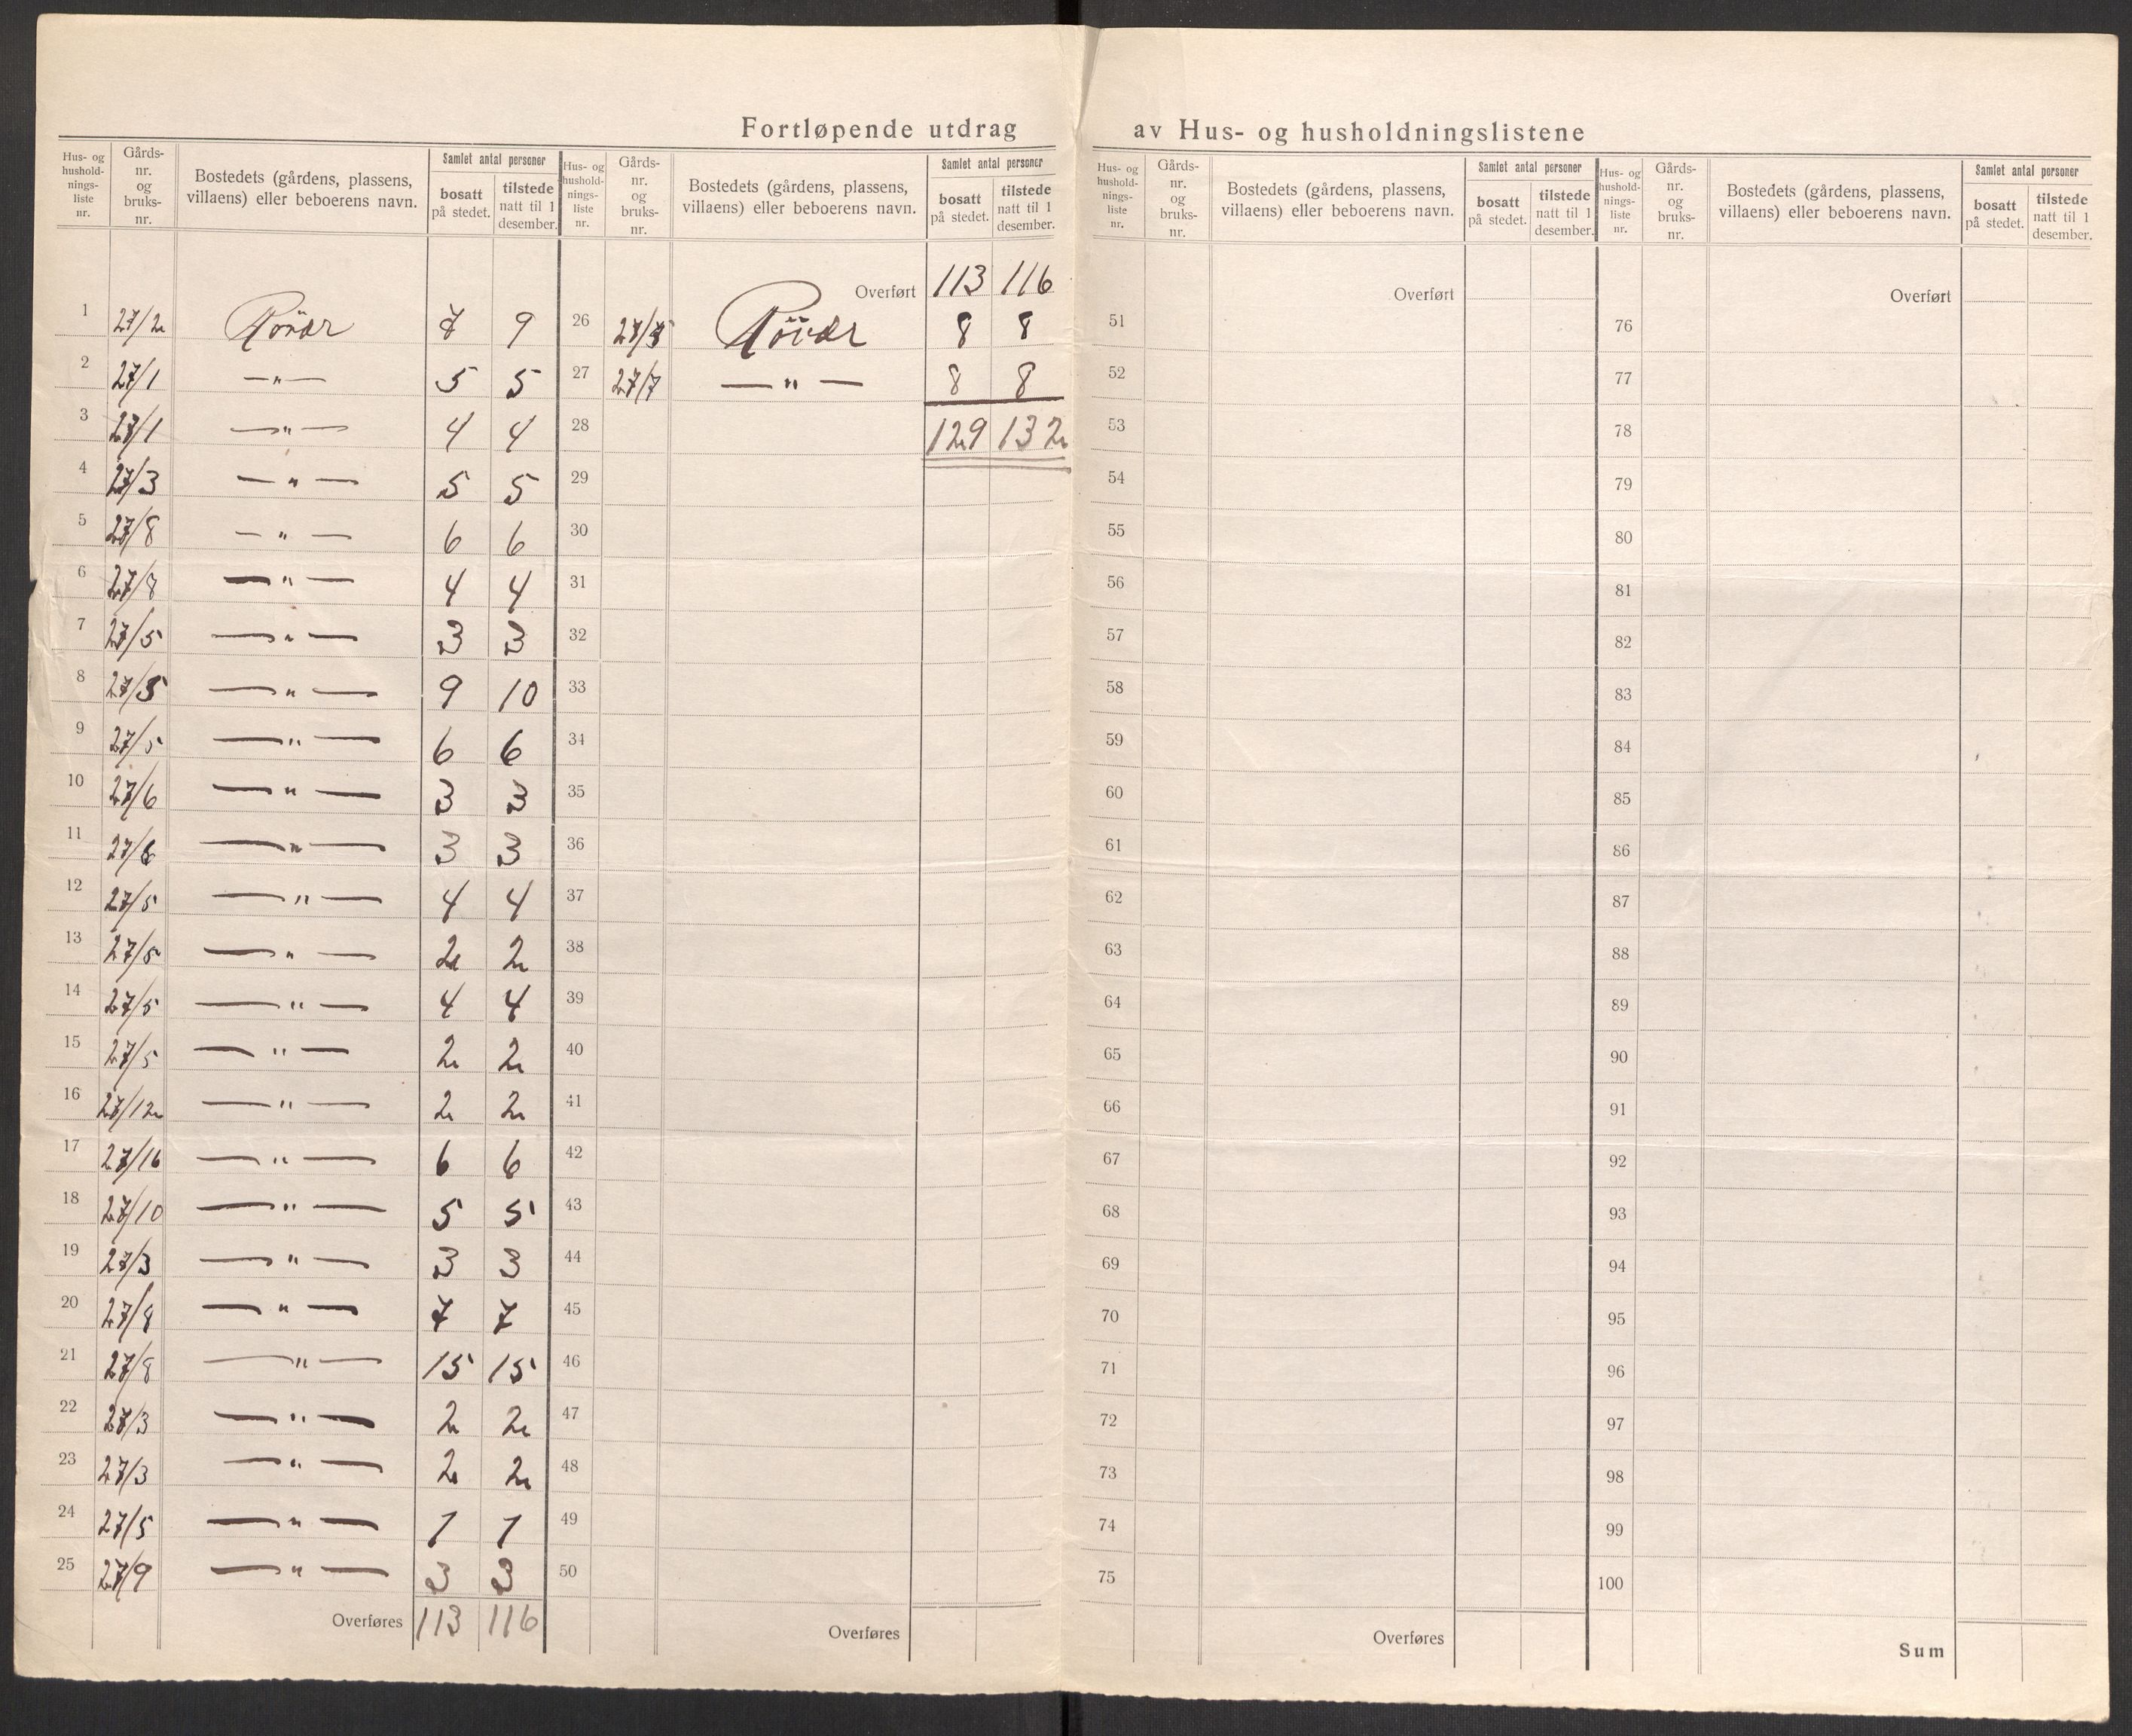 Fortløpende utdrag av Hus- og husholdningslistene
Hus- og hushold-nings-liste nr. Gårds-nr. og bruks-nr. Bostedets (gårdens, plassens, villaens) eller beboerens navn. Samlet antal personer bosatt på stedet. tilstede natt til 1 desember.
1 27/2 Röver 7 9
2 27/1 —"— 5 5
3 27/1 —"— 4 4
4 27/3 —"— 5 5
5 27/8 —"— 6 6
6 27/8 —"— 4 4
7 27/5 —"— 3 3
8 27/5 —"— 9 10
9 27/5 —"— 6 6
10 27/6 —"— 3 3
11 27/6 —"— 3 3
12 27/5 —"— 4 4
13 27/5 —"— 2 2
14 27/5 —"— 4 4
15 27/5 —"— 2 2
16 27/12 —"— 2 2
17 27/16 —"— 6 6
18 27/10 —"— 5 5
19 27/3 —"— 3 3
20 27/8 —"— 7 7
21 27/8 —"— 15 15
22 27/3 —"— 2 2
23 27/3 —"— 2 2
24 27/5 —"— 1 1
25 27/9 —"— 3 3
Overføres 113 116
Hus- og hushold-nings-liste nr. Gårds-nr. og bruks-nr. Bostedets (gårdens, plassens, villaens) eller beboerens navn. Samlet antal personer bosatt på stedet. tilstede natt til 1 desember.
Overført 113 116
26 27/ Röver 8 8
27 27/7 —"— 8 8
28 129 132
29
30
31
32
33
34
35
36
37
38
39
40
41
42
43
44
45
46
47
48
49
50
Overføres
Hus- og hushold-nings-liste nr. Gårds-nr. og bruks-nr. Bostedets (gårdens, plassens, villaens) eller beboerens navn. Samlet antal personer bosatt på stedet. tilstede natt til 1 desember.
Overført
51
52
53
54
55
56
57
58
59
60
61
62
63
64
65
66
67
68
69
70
71
72
73
74
75
Overføres
Hus- og hushold-nings-liste nr. Gårds-nr. og bruks-nr. Bostedets (gårdens, plassens, villaens) eller beboerens navn. Samlet antal personer bosatt på stedet. tilstede natt til 1 desember.
Overført
76
77
78
79
80
81
82
83
84
85
86
87
88
89
90
91
92
93
94
95
96
97
98
99
100
Sum